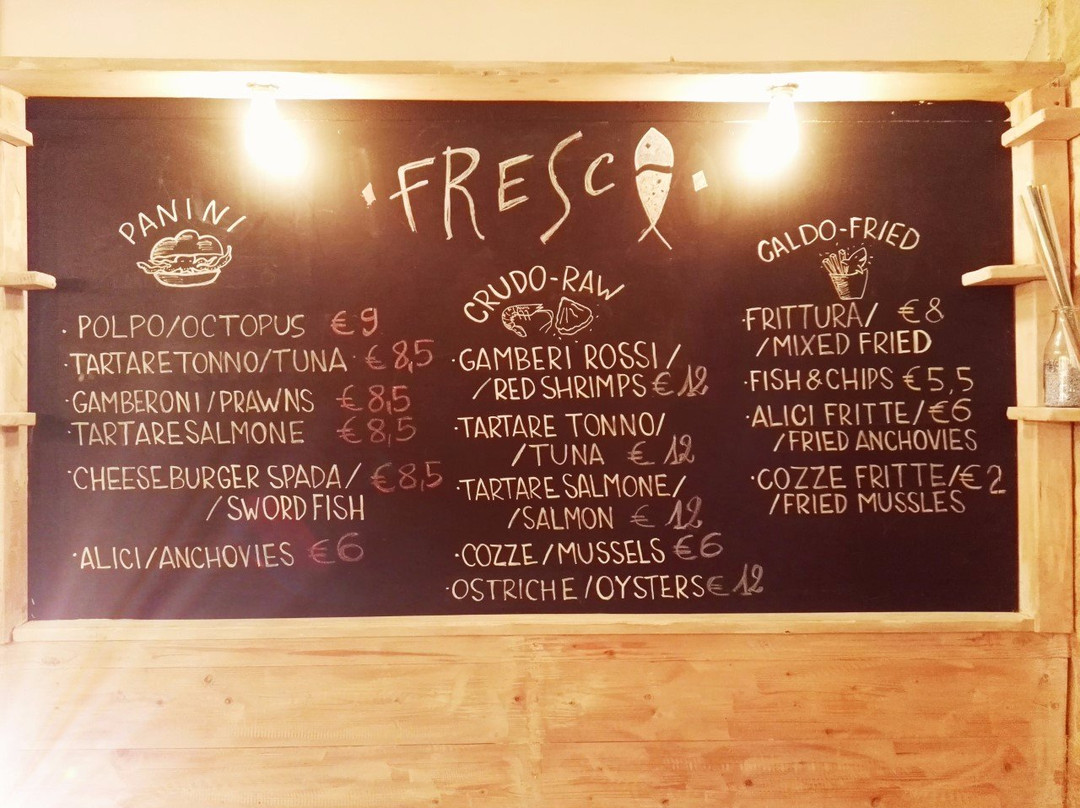 FRESCO
PANINI
· POLPO/OCTOPUS €9
· TARTARE TONNO/TUNA · €8,5
· GAMBERONI/PRAWNS €8,5
· TARTARE SALMONE €8,5
· CHEESEBURGER SPADA/ €8,5
/SWORD FISH
· ALICI/ANCHOVIES €6
CRUDO-RAW
· GAMBERI ROSSI/
/RED SHRIMPS €12
· TARTARE TONNO/
/TUNA €12
· TARTARE SALMONE/
/SALMON €12
· COZZE/MUSSELS €6
· OSTRICHE/OYSTERS €12
CALDO-FRIED
· FRITTURA/ €8
/MIXED FRIED
· FISH & CHIPS €5,5
· ALICI FRITTE/€6
/FRIED ANCHOVIES
· COZZE FRITTE/€2
/FRIED MUSSLES